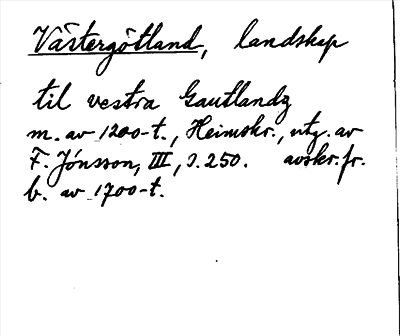 Västergötland, landskap
til vestra Gautlandz
m. av 1200-t., Heimskr., utg. av
F. Jónsson, III, s. 250. avskr. fr.
b. av 1700-t.